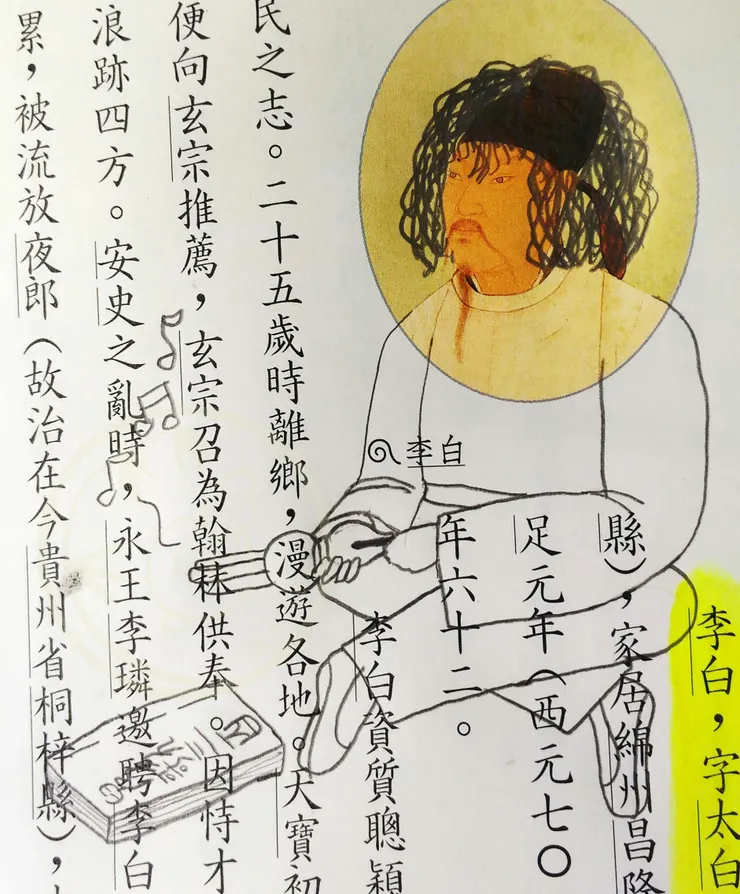 李白
李白，字太白
縣），家居綿州昌隆
足元年（西元七〇
年六十二。
李白資質聰穎
民之志。二十五歲時離鄉，漫遊各地。天寶初
便向玄宗推薦，玄宗召為翰林供奉。因恃才
浪跡四方。安史之亂時，永王李璘邀聘李白
累，被流放夜郎（故治在今貴州省桐梓縣），